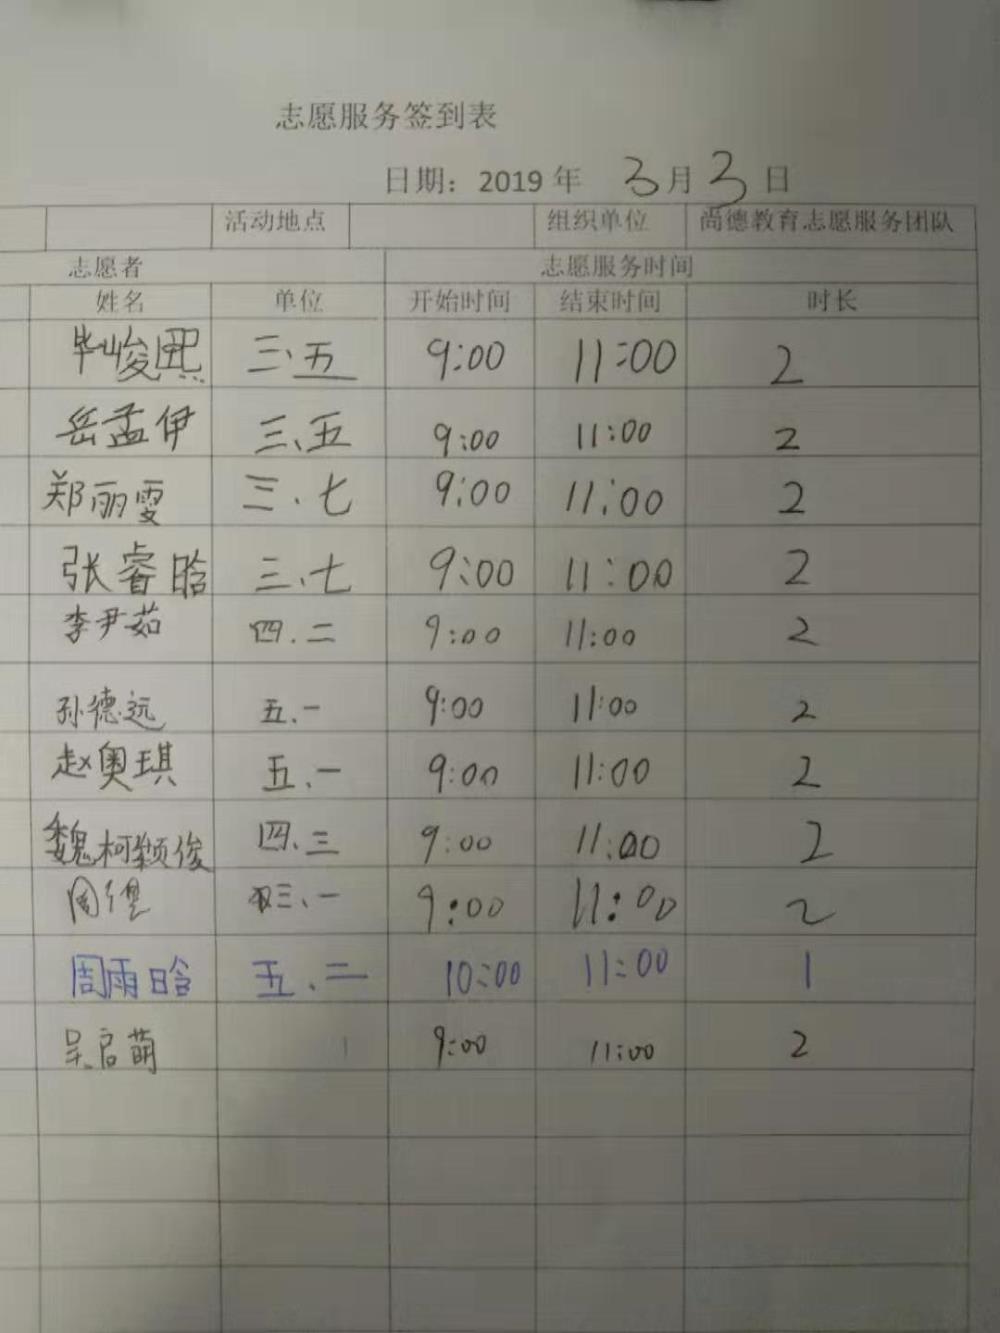 志愿服务签到表
日期：2019 年 3月3日
活动地点 组织单位 尚德教育志愿服务团队
志愿者 志愿服务时间
姓名 单位 开始时间 结束时间 时长
毕峻熙 三、五 9:00 11:00 2
岳孟伊 三、五 9:00 11:00 2
郑丽雯 三、七 9:00 11:00 2
张睿晗 三、七 9:00 11:00 2
李尹茹 四.二 9:00 11:00 2
孙德远 五.一 9:00 11:00 2
赵奥琪 五.一 9:00 11:00 2
魏柯颖俊 四.三 9:00 11:00 2
周 三、一 9:00 11:00 2
周雨晗 五.二 10:00 11:00 1
吴启萌 9:00 11:00 2